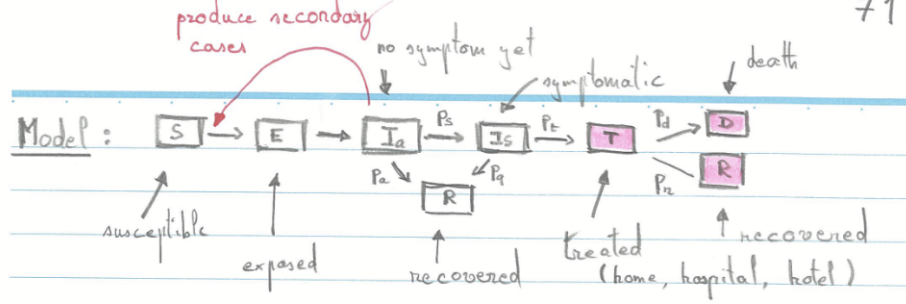 71
produce secondary
cases
no symptom yet
symptomatic
death
Model :
S
E
Ia
Ps
Is
Pt
T
Pd
D
Pa
R
Pq
Pr
R
susceptible
exposed
recovered
treated
(home, hospital, hotel)
recovered